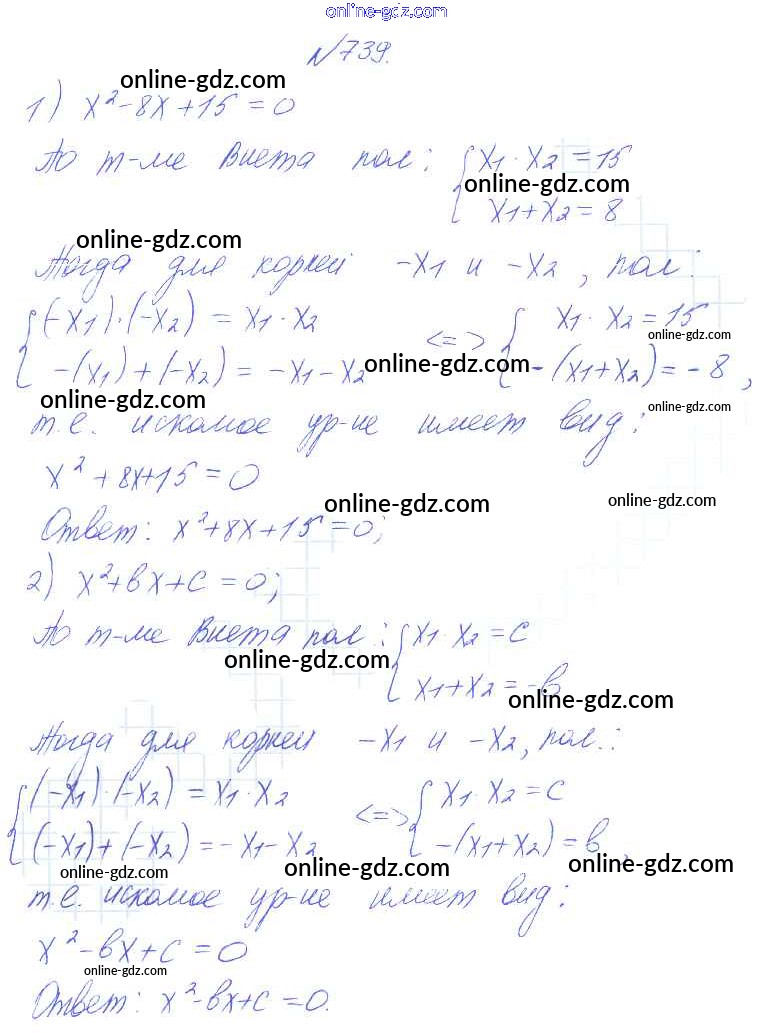 online-gdz.com
№739.
online-gdz.com
1) x² - 8x + 15 = 0
По т-ме Виета пол: { x1 · x2 = 15
online-gdz.com
x1 + x2 = 8
online-gdz.com
Тогда для корней -x1 и -x2, пол:
{ (-x1)·(-x2) = x1 · x2 <=> { x1 · x2 = 15
online-gdz.com
-(x1) + (-x2) = -x1 - x2 -(x1+x2) = -8,
online-gdz.com
online-gdz.com
online-gdz.com
т.е. искомое ур-ие имеет вид:
x² + 8x + 15 = 0
online-gdz.com
online-gdz.com
Ответ: x² + 8x + 15 = 0;
2) x² + bx + c = 0;
По т-ме Виета пол: { x1 · x2 = c
online-gdz.com
x1 + x2 = -b
online-gdz.com
Тогда для корней -x1 и -x2, пол.:
{ (-x1)·(-x2) = x1 · x2 <=> { x1 · x2 = c
(-x1) + (-x2) = -x1 - x2 -(x1+x2) = b,
online-gdz.com
online-gdz.com
online-gdz.com
т.е. искомое ур-ие имеет вид:
x² - bx + c = 0
online-gdz.com
Ответ: x² - bx + c = 0.